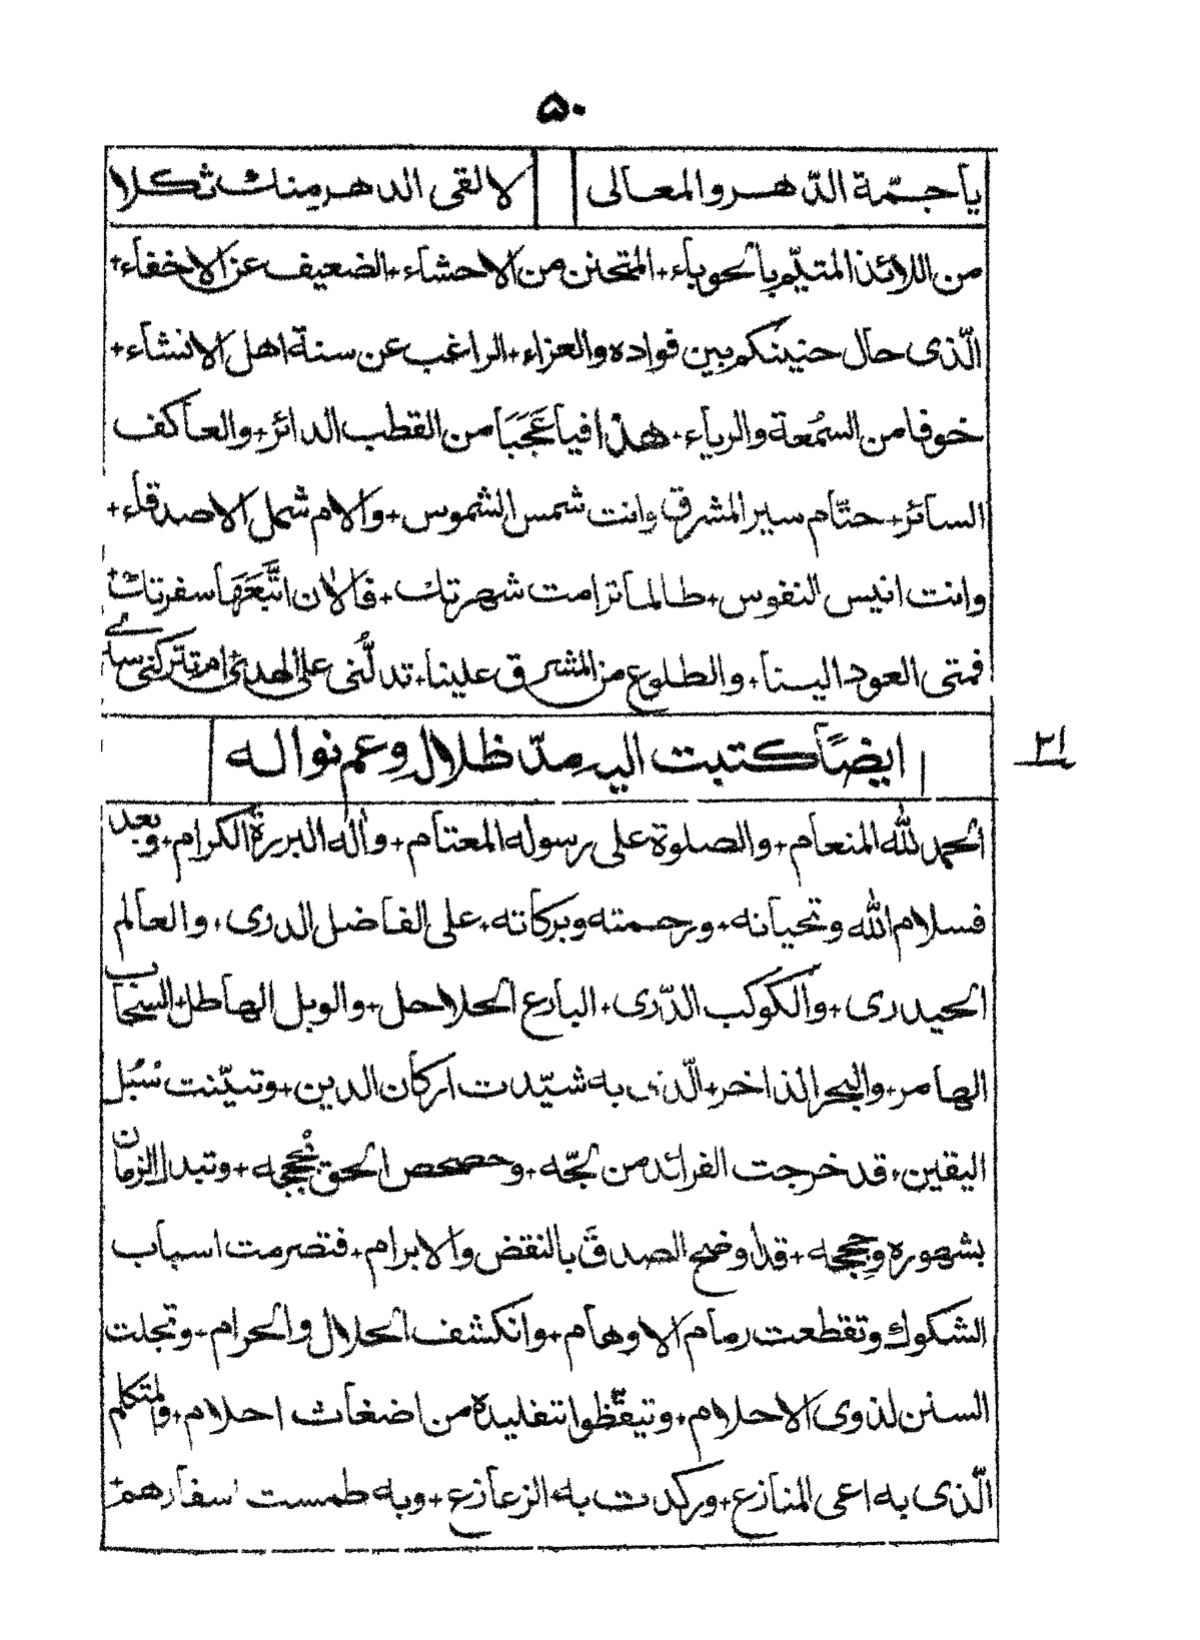 ۵۰
يا جمّة الدّهر والمعالى لا لقى الدهر منك ثكلا
من اللائذ المتيّم بالحوباء+ المتحنن من الاحشاء+ الضعيف عن الاخفاء+
الّذى حال حنينكم بين فواده والعزاء+ الراغب عن سنة اهل الانشاء+
خوفا من السمُعة والرياء+ هذا فيا عَجَبَا من القطب الدائر+ والعاكف
السائر+ حتّام سير المشرق وانت شمس الشموس+ والام شمل الاصدقاء+
وانت انيس النفوس+ طالما ترامت شهرتك+ فالان اتَّبَعَهَا سفرتك+
فمتى العود الينا+ والطلوع من المشرق علينا+ تدلُّنى على الهدى ام تتركنى سدى
۲۱
ايضًا كتبت اليه مدّ ظلاله وعم نواله
الحمد لله المنعام+ والصلوة على رسوله المعتام+ واله البررة الكرام+ وبعد
فسلام الله وتحياته+ ورحمته وبركاته+ على الفاضل الدرى+ والعالم
الحيدرى+ والكوكب الدّرى+ البارع الحلاحل+ والوبل الهاطل+ السحاب
الهامر+ والبحر الذاخر+ الّذى به شيّدت اركان الدين+ وتبيّنت سُبُل
اليقين+ قد خرجت الفرائد من لجّه+ وحصحص الحق بحُججه+ وتبدل الزمان
بشهوره وحِججه+ قد اوضح الصدق بالنقض والابرام+ فتصرمت اسباب
الشكوك وتقطعت رمام الاوهام+ وانكشف الحلال والحرام+ وتجلت
السنن لذوى الاحلام+ وتيقّظوا بتقليده من اضغاث احلام+ والمتكلم
الّذى به اعى المنازع+ وركدت به الزعازع+ وبه طمست اسفارهم+